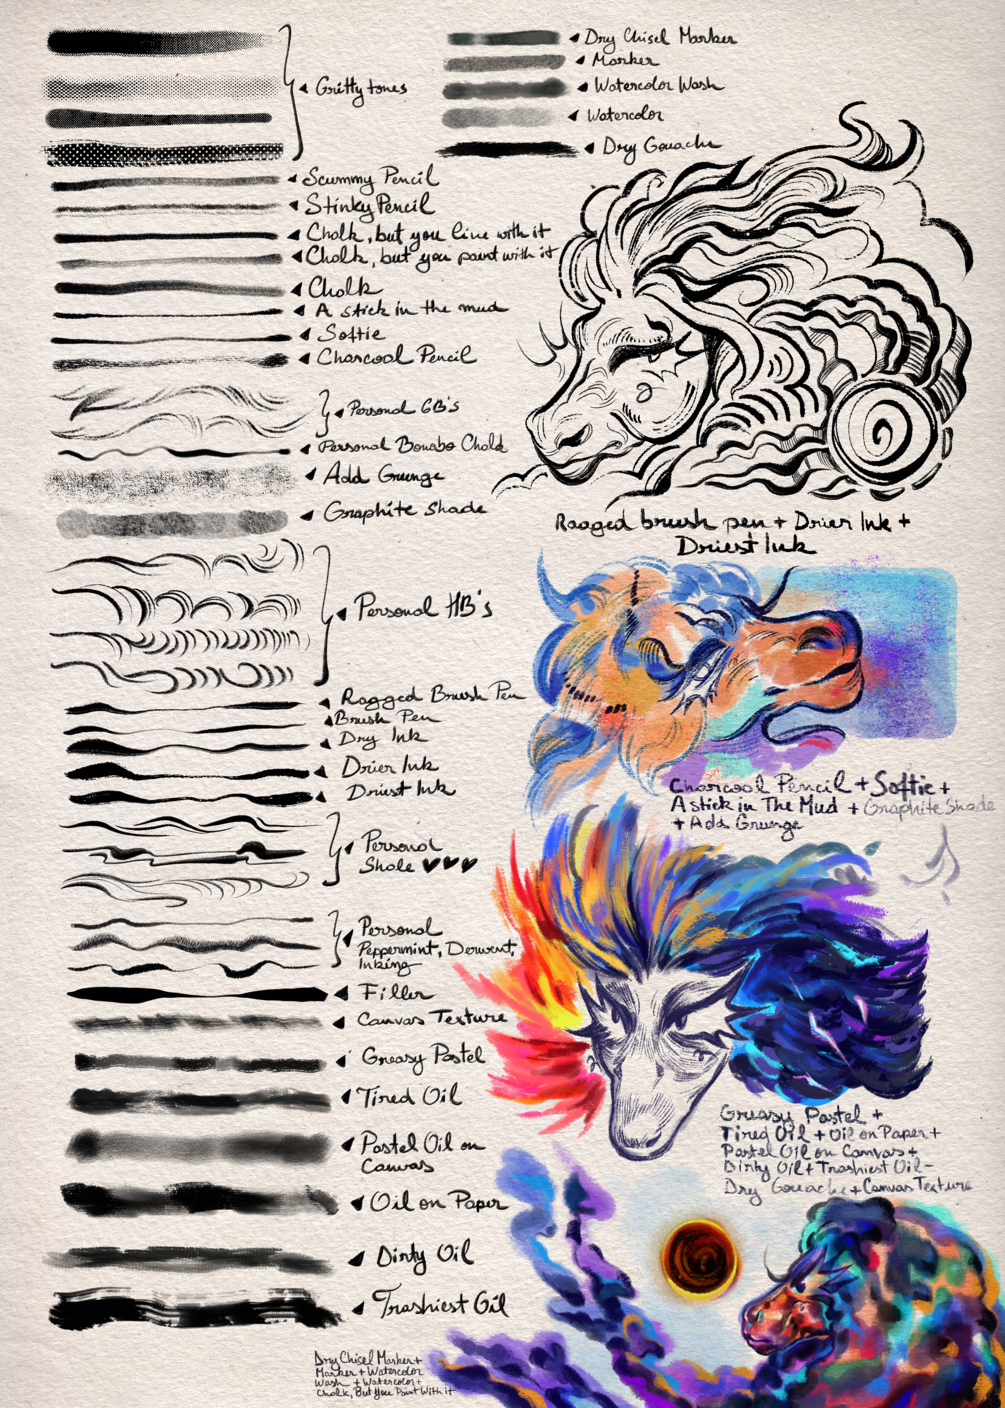 Gritty tones
Scummy Pencil
Stinky Pencil
Chalk, but you line with it
Chalk, but you paint with it
Chalk
A stick in the mud
Softie
Charcoal Pencil
Personal 6B's
Personal
Add Grunge
Graphite Shade
Personal HB's
Ragged Brush Pen
Brush Pen
Dry Ink
Drier Ink
Driest Ink
Personal
Shale ♥♥♥
Personal
Peppermint, Derwent,
Inking
Filler
Canvas Texture
Greasy Pastel
Tired Oil
Pastel Oil on
Canvas
Oil on Paper
Dirty Oil
Trashiest Oil
Dry Chisel Marker
Marker
Watercolor Wash
Watercolor
Dry Gouache
Ragged brush pen + Drier Ink +
Driest Ink
Charcoal Pencil + Softie +
A stick in The Mud + Graphite Shade
+ Add Grunge
Greasy Pastel +
Tired Oil + Oil on Paper +
Pastel Oil on Canvas +
Dirty Oil + Trashiest Oil -
Dry Gouache + Canvas Texture
Dry Chisel Marker +
Marker + Watercolor
Wash + Watercolor +
Chalk, But You Paint With it